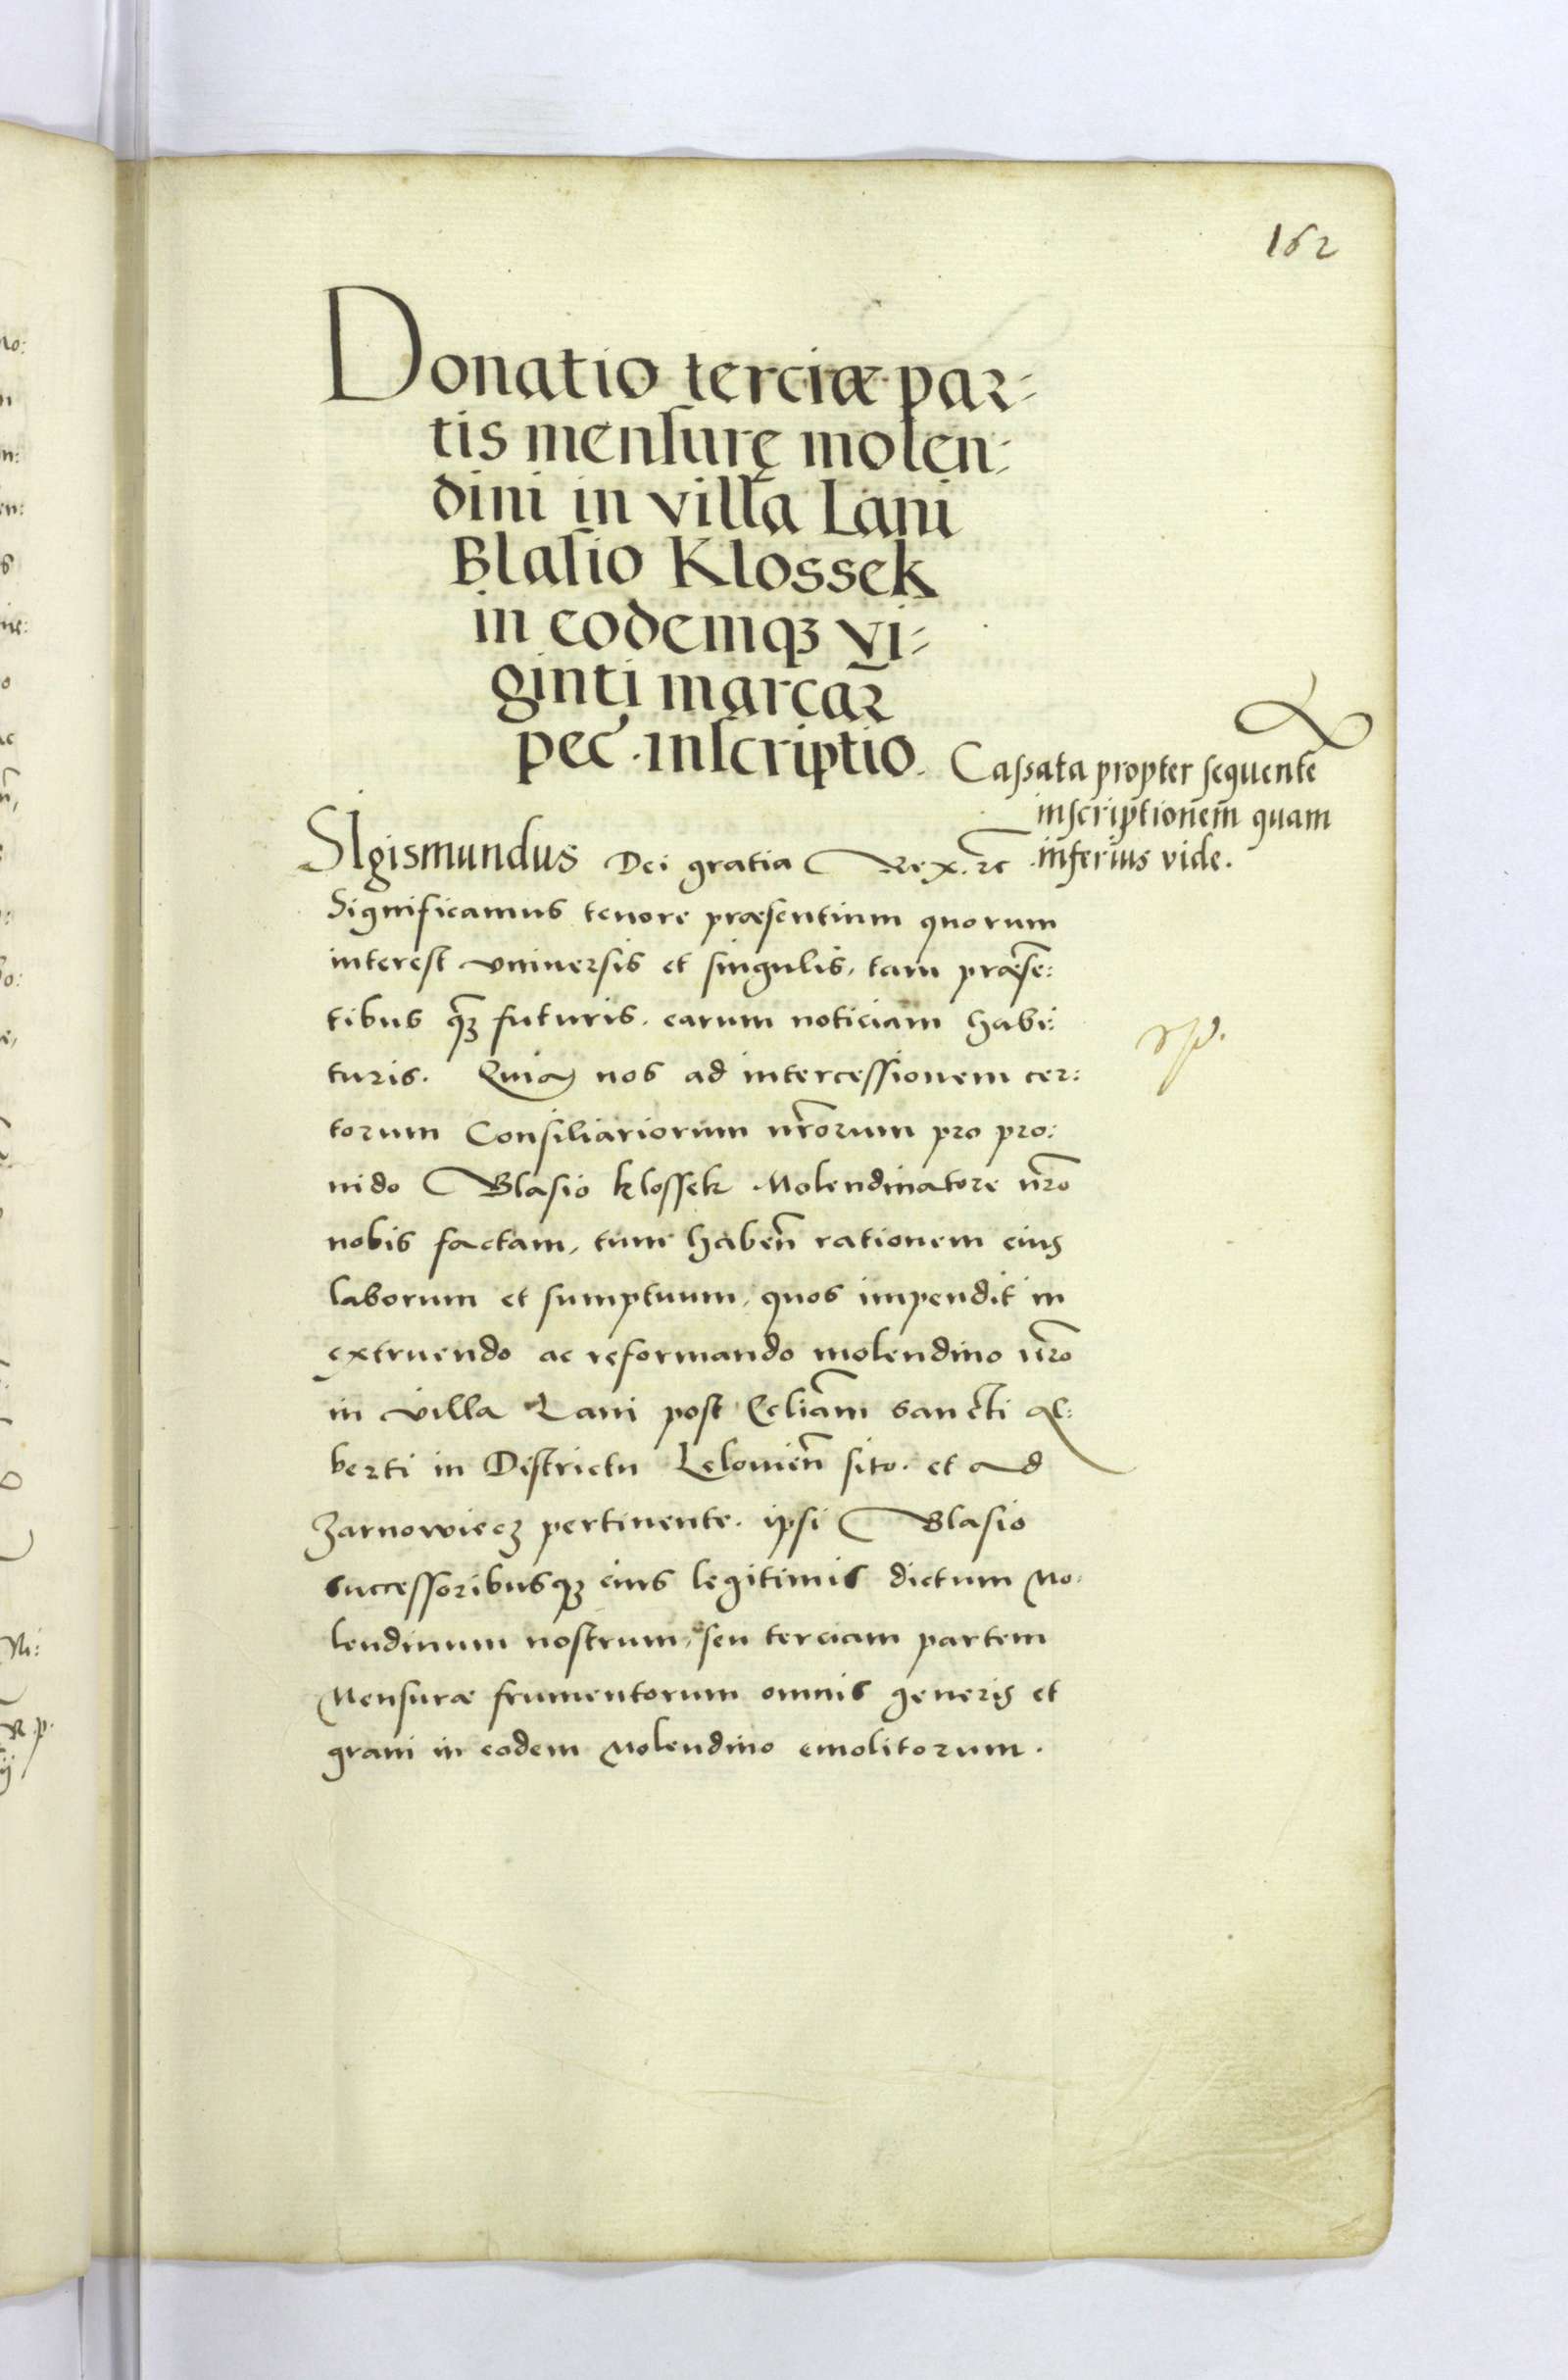 162
Donatio terciæ par=
tis mensurę molen=
dini in villa Lani
Blasio Klossek
in eodemqȝ vi=
ginti marcar̃
pec̃. inscriptio.
Cassata propter sequentẽ
inscriptionem quam
inferius vide.
SIgismundus Dei gratia Rex. ꝛc
Significamus tenore præsentium quorum
interest vniuersis et singulis, tam præsẽ:
tibus q̃ȝ futuris. earum noticiam habi:
turis. Quia nos ad intercessionem cer:
torum Consiliariorum nr̃orum pro pro:
uido Blasio Klossek Molendinatore nr̃o
nobis factam, tum habeñ rationem eius
laborum et sumptuum, quos impendit in
extruendo ac reformando molendino nr̃o
in villa Lani post Ecl̃iam sancti Al:
berti in Districtu Lelouieñ sito. et ad
Zarnowiecz pertinente. ipsi Blasio
successoribusqȝ eius legitimis dictum Mo:
lendinum nostrum, seu terciam partem
Mensuræ frumentorum omnis generis et
grani in eodem Molendino emolitorum.